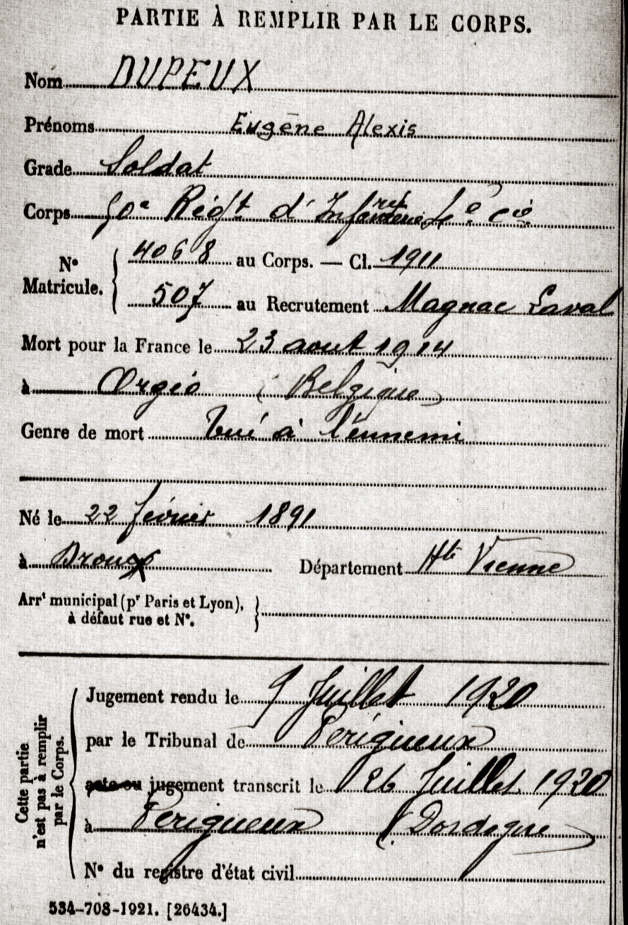 PARTIE À REMPLIR PAR LE CORPS.
Nom DUPEUX
Prénoms Eugène Alexis
Grade Soldat
Corps 50e Régt d'Infanterie e cie
N° Matricule. 4068 au Corps. — Cl. 1911
507 au Recrutement Magnac Laval
Mort pour la France le 23 aout 1914
à Orgéo (Belgique)
Genre de mort tué à l'ennemi
Né le 22 février 1891
à Droux Département Hte Vienne
Arrt municipal (pr Paris et Lyon),
à défaut rue et N°.
Cette partie n'est pas à remplir par le Corps.
Jugement rendu le 9 Juillet 1920
par le Tribunal de Périgueux
acte ou jugement transcrit le 26 Juillet 1920
à Périgueux (Dordogne
N° du registre d'état civil
534-708-1921. [26434.]